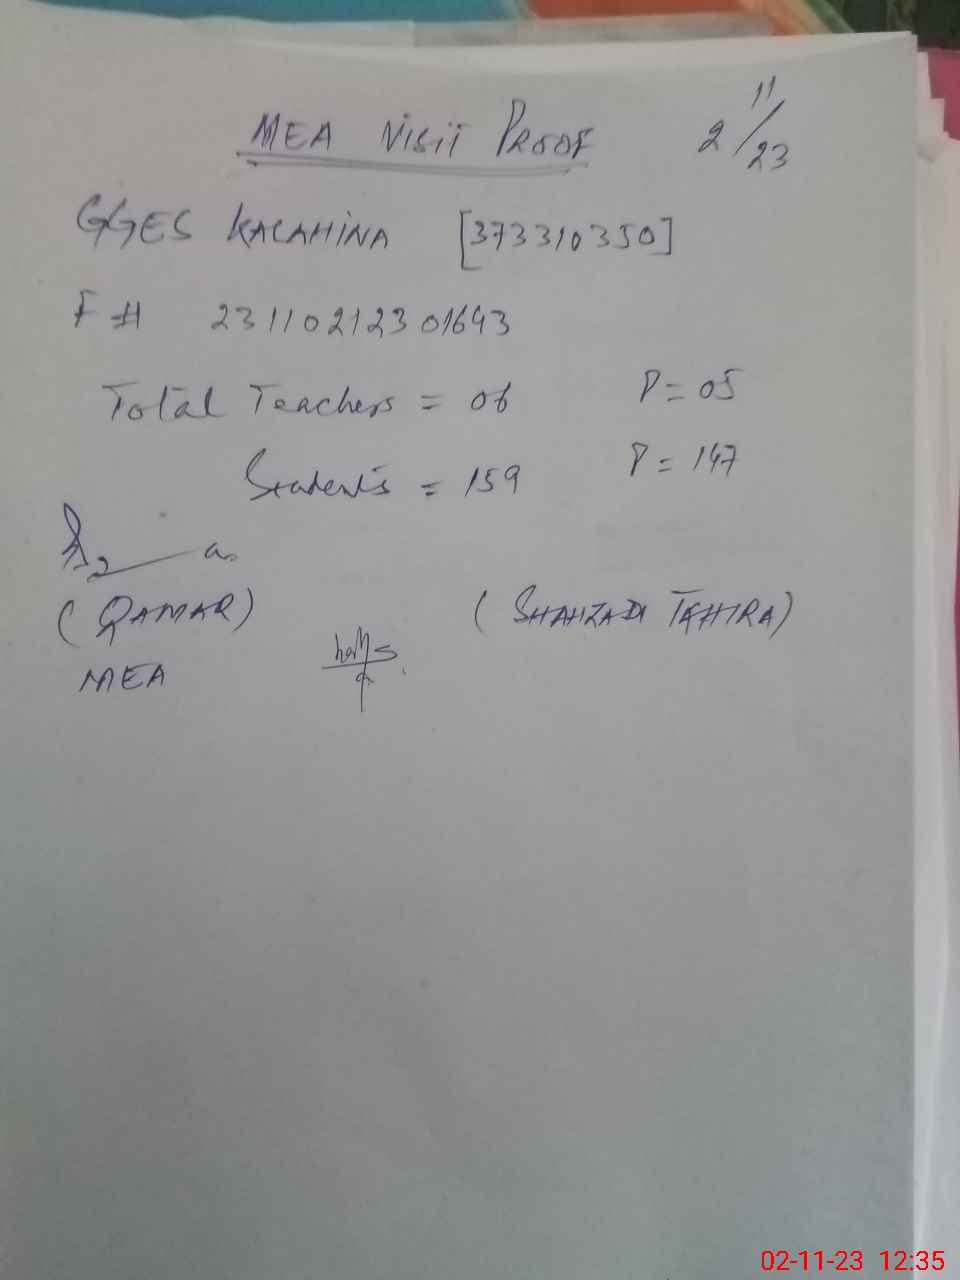 MEA Visit Proof 2/11/23
GGES KALAHINA [373310350]
F# 23110212301643
Total Teachers = 06 P = 05
Students = 159 P = 147
(QAMAR) (SHAHZADI TAHIRA)
MEA
02-11-23 12:35